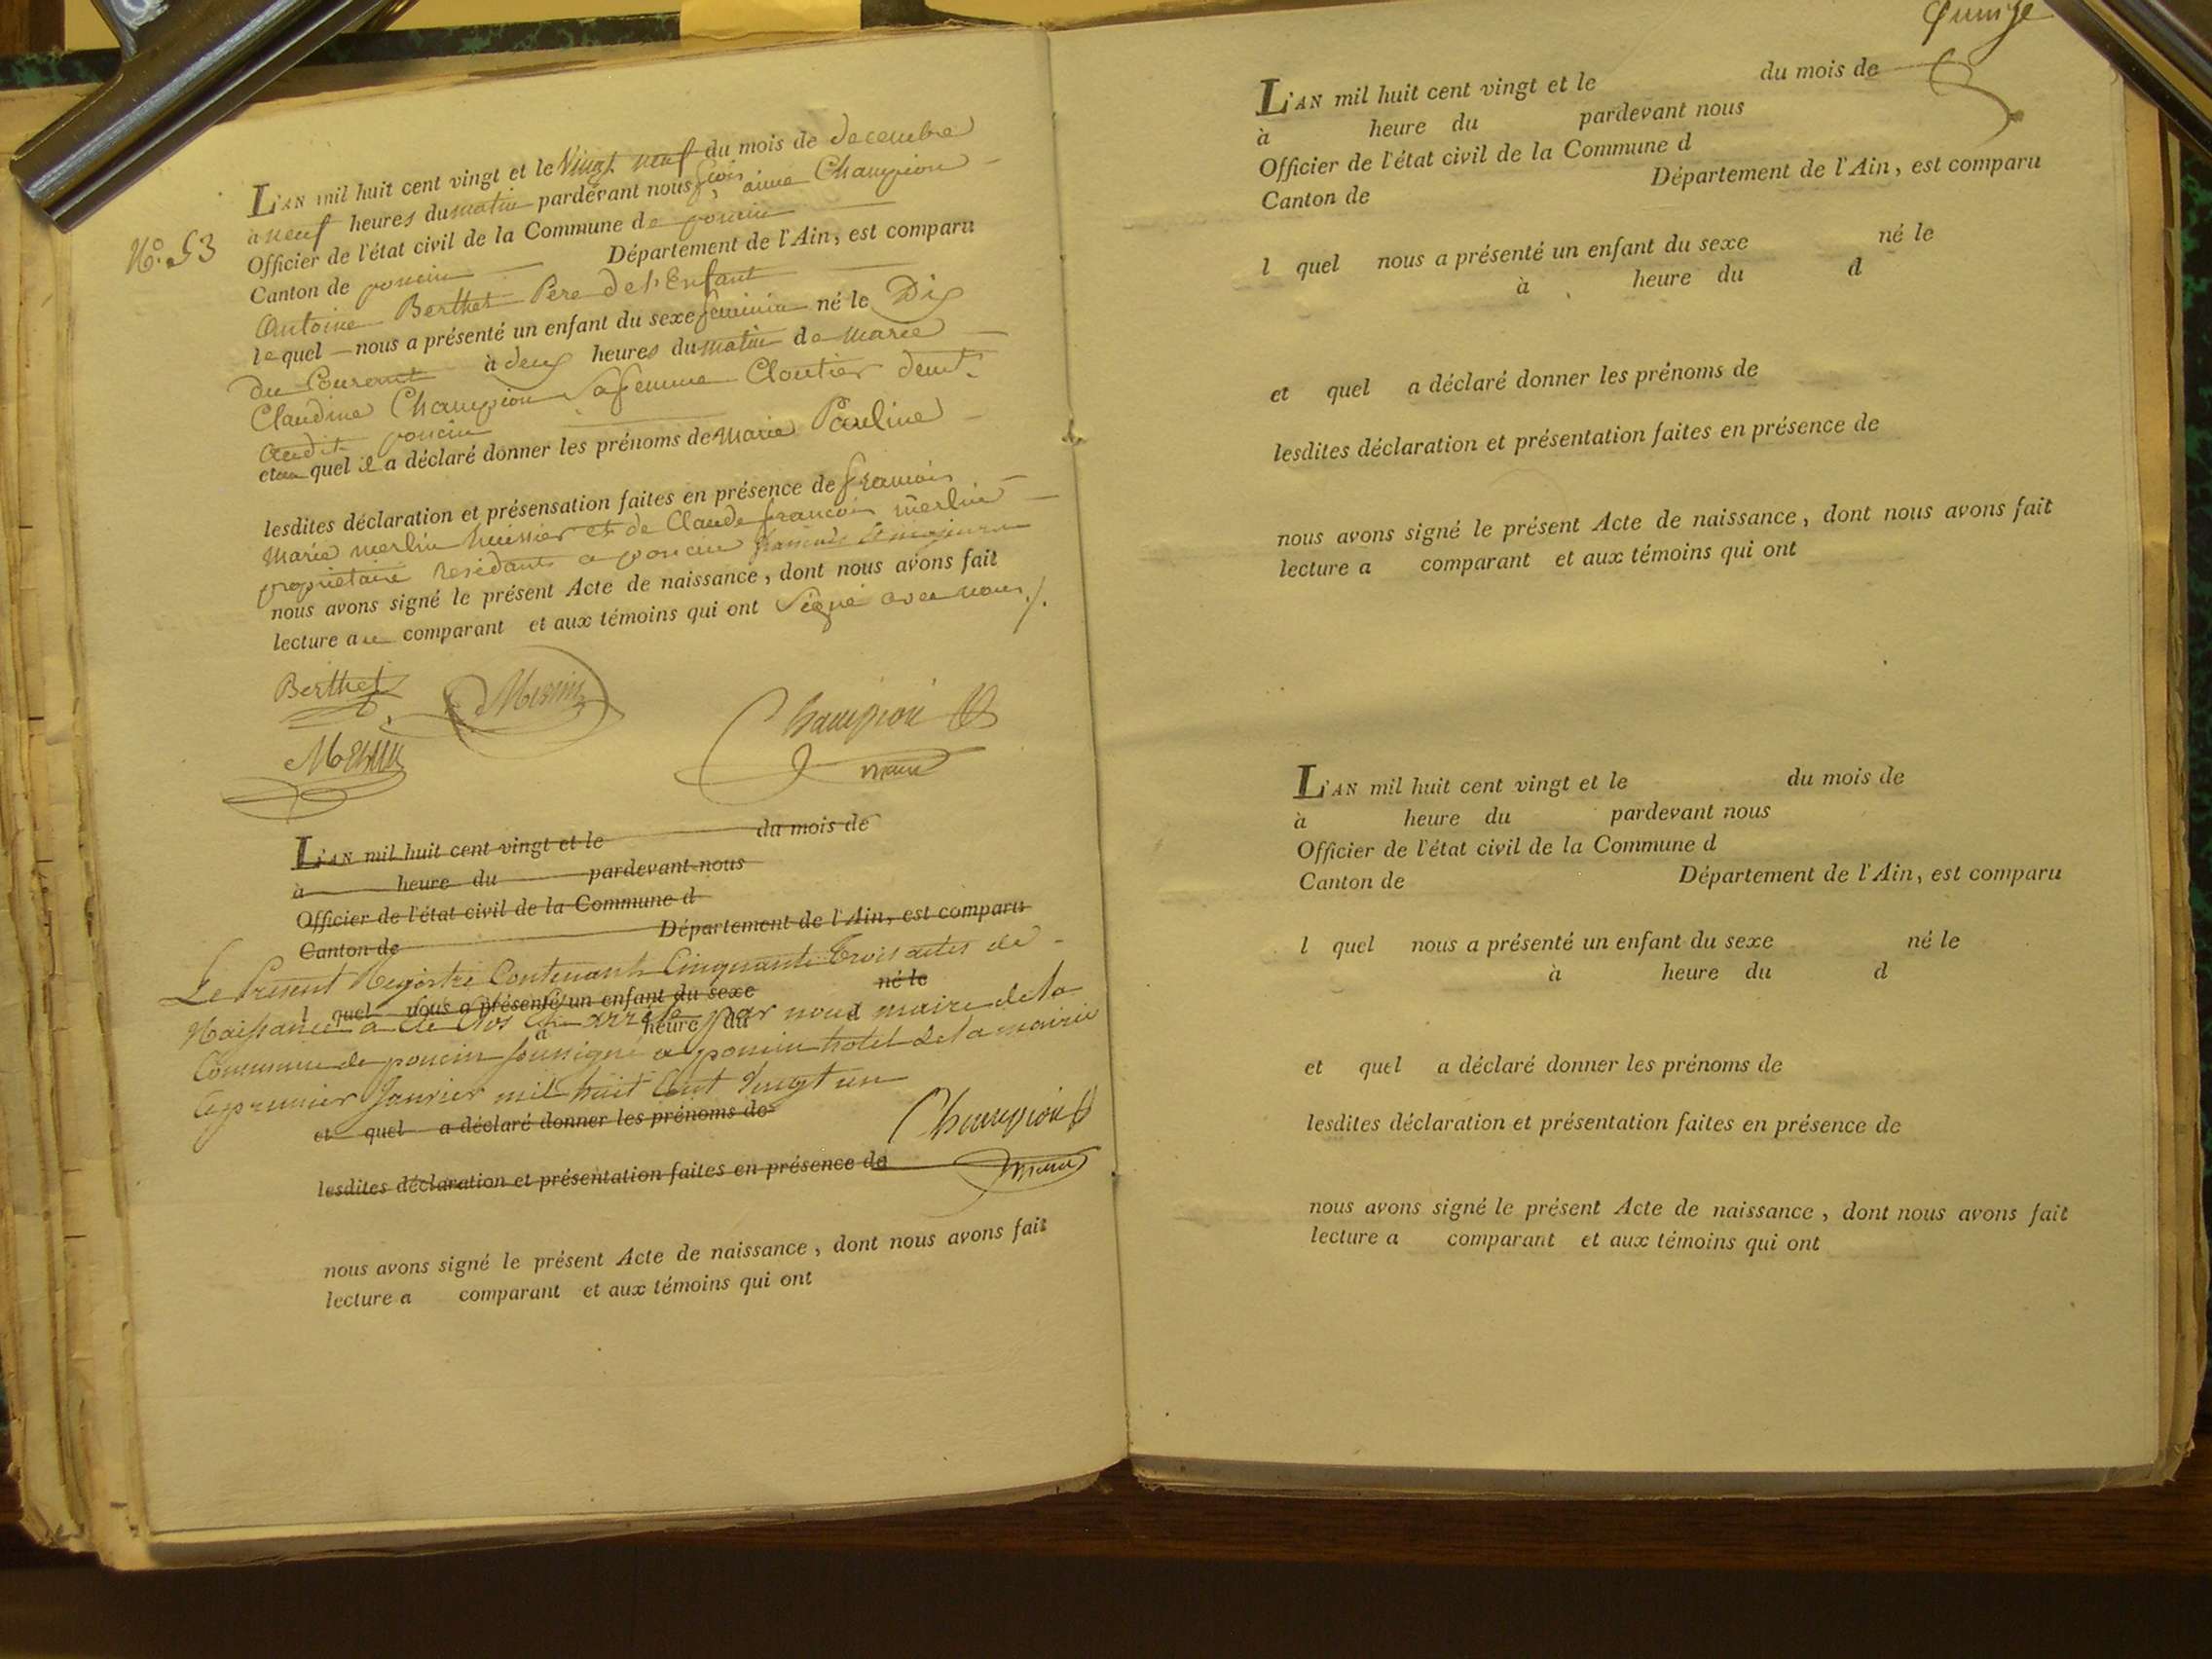 L'AN mil huit cent vingt et le Vingt neuf du mois de decembre
à neuf heures du matin pardevant nous fçois aimé Champion
Officier de l'état civil de la Commune de poncin
Canton de poncin Département de l'Ain, est comparu
N.º 53
Antoine Berthet Pere de l'Enfant
le quel nous a présenté un enfant du sexe feminin né le Dix
du Courant à deux heures du matin de Marie
Claudine Champion Sa femme Cloutier demt.
audit poncin
et au quel il a déclaré donner les prénoms de Marie Pauline
lesdites déclaration et présensation faites en présence de francois
Marie merlin huissier et de Claude francois merlin
proprietaire Residants a poncin
nous avons signé le présent Acte de naissance, dont nous avons fait
lecture au comparant et aux témoins qui ont Signé avec nous ./.
Berthet Merlin
Champion
Merlin
maire
L'AN mil huit cent vingt et le du mois de
à heure du pardevant nous
Officier de l'état civil de la Commune d
Canton de Département de l'Ain, est comparu
Le Present Registre Contenant Cinquante Trois actes de
l quel nous a présenté un enfant du sexe né le
Naissance a été Clos et arrêté par nous maire de la
à heure du d
Commune de poncin soussigné a poncin hotel de la mairie
le premier Janvier mil huit Cent Vingt un
et quel a déclaré donner les prénoms de
Champion
lesdites déclaration et présentation faites en présence de
maire
nous avons signé le présent Acte de naissance, dont nous avons fait
lecture a comparant et aux témoins qui ont
quinze
L'AN mil huit cent vingt et le du mois de
à heure du pardevant nous
Officier de l'état civil de la Commune d
Canton de Département de l'Ain, est comparu
l quel nous a présenté un enfant du sexe né le
à heure du d
et quel a déclaré donner les prénoms de
lesdites déclaration et présentation faites en présence de
nous avons signé le présent Acte de naissance, dont nous avons fait
lecture a comparant et aux témoins qui ont
L'AN mil huit cent vingt et le du mois de
à heure du pardevant nous
Officier de l'état civil de la Commune d
Canton de Département de l'Ain, est comparu
l quel nous a présenté un enfant du sexe né le
à heure du d
et quel a déclaré donner les prénoms de
lesdites déclaration et présentation faites en présence de
nous avons signé le présent Acte de naissance, dont nous avons fait
lecture a comparant et aux témoins qui ont